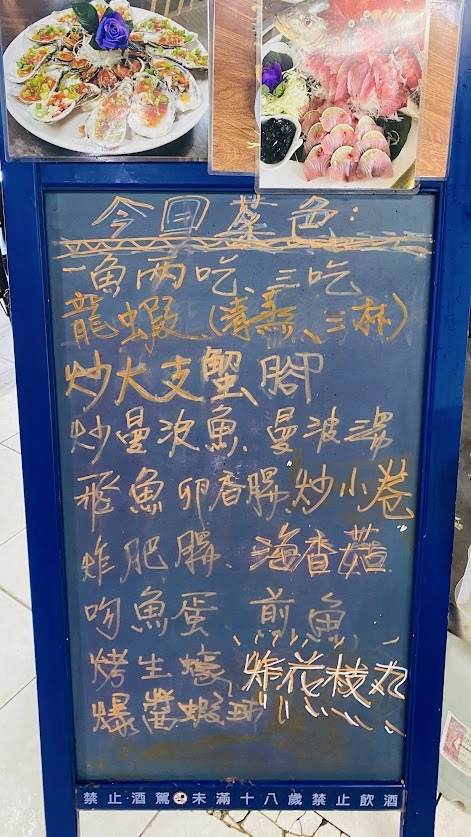 今日菜色:
一魚兩吃、三吃
龍蝦(清蒸、三杯)
炒大支蟹腳
炒曼波魚、曼波湯
飛魚卵香腸、炒小卷
炸肥腸、海香菇
吻魚蛋 煎魚
烤生蠔、炸花枝丸
爆醬蝦
禁止酒駕 未滿十八歲禁止飲酒